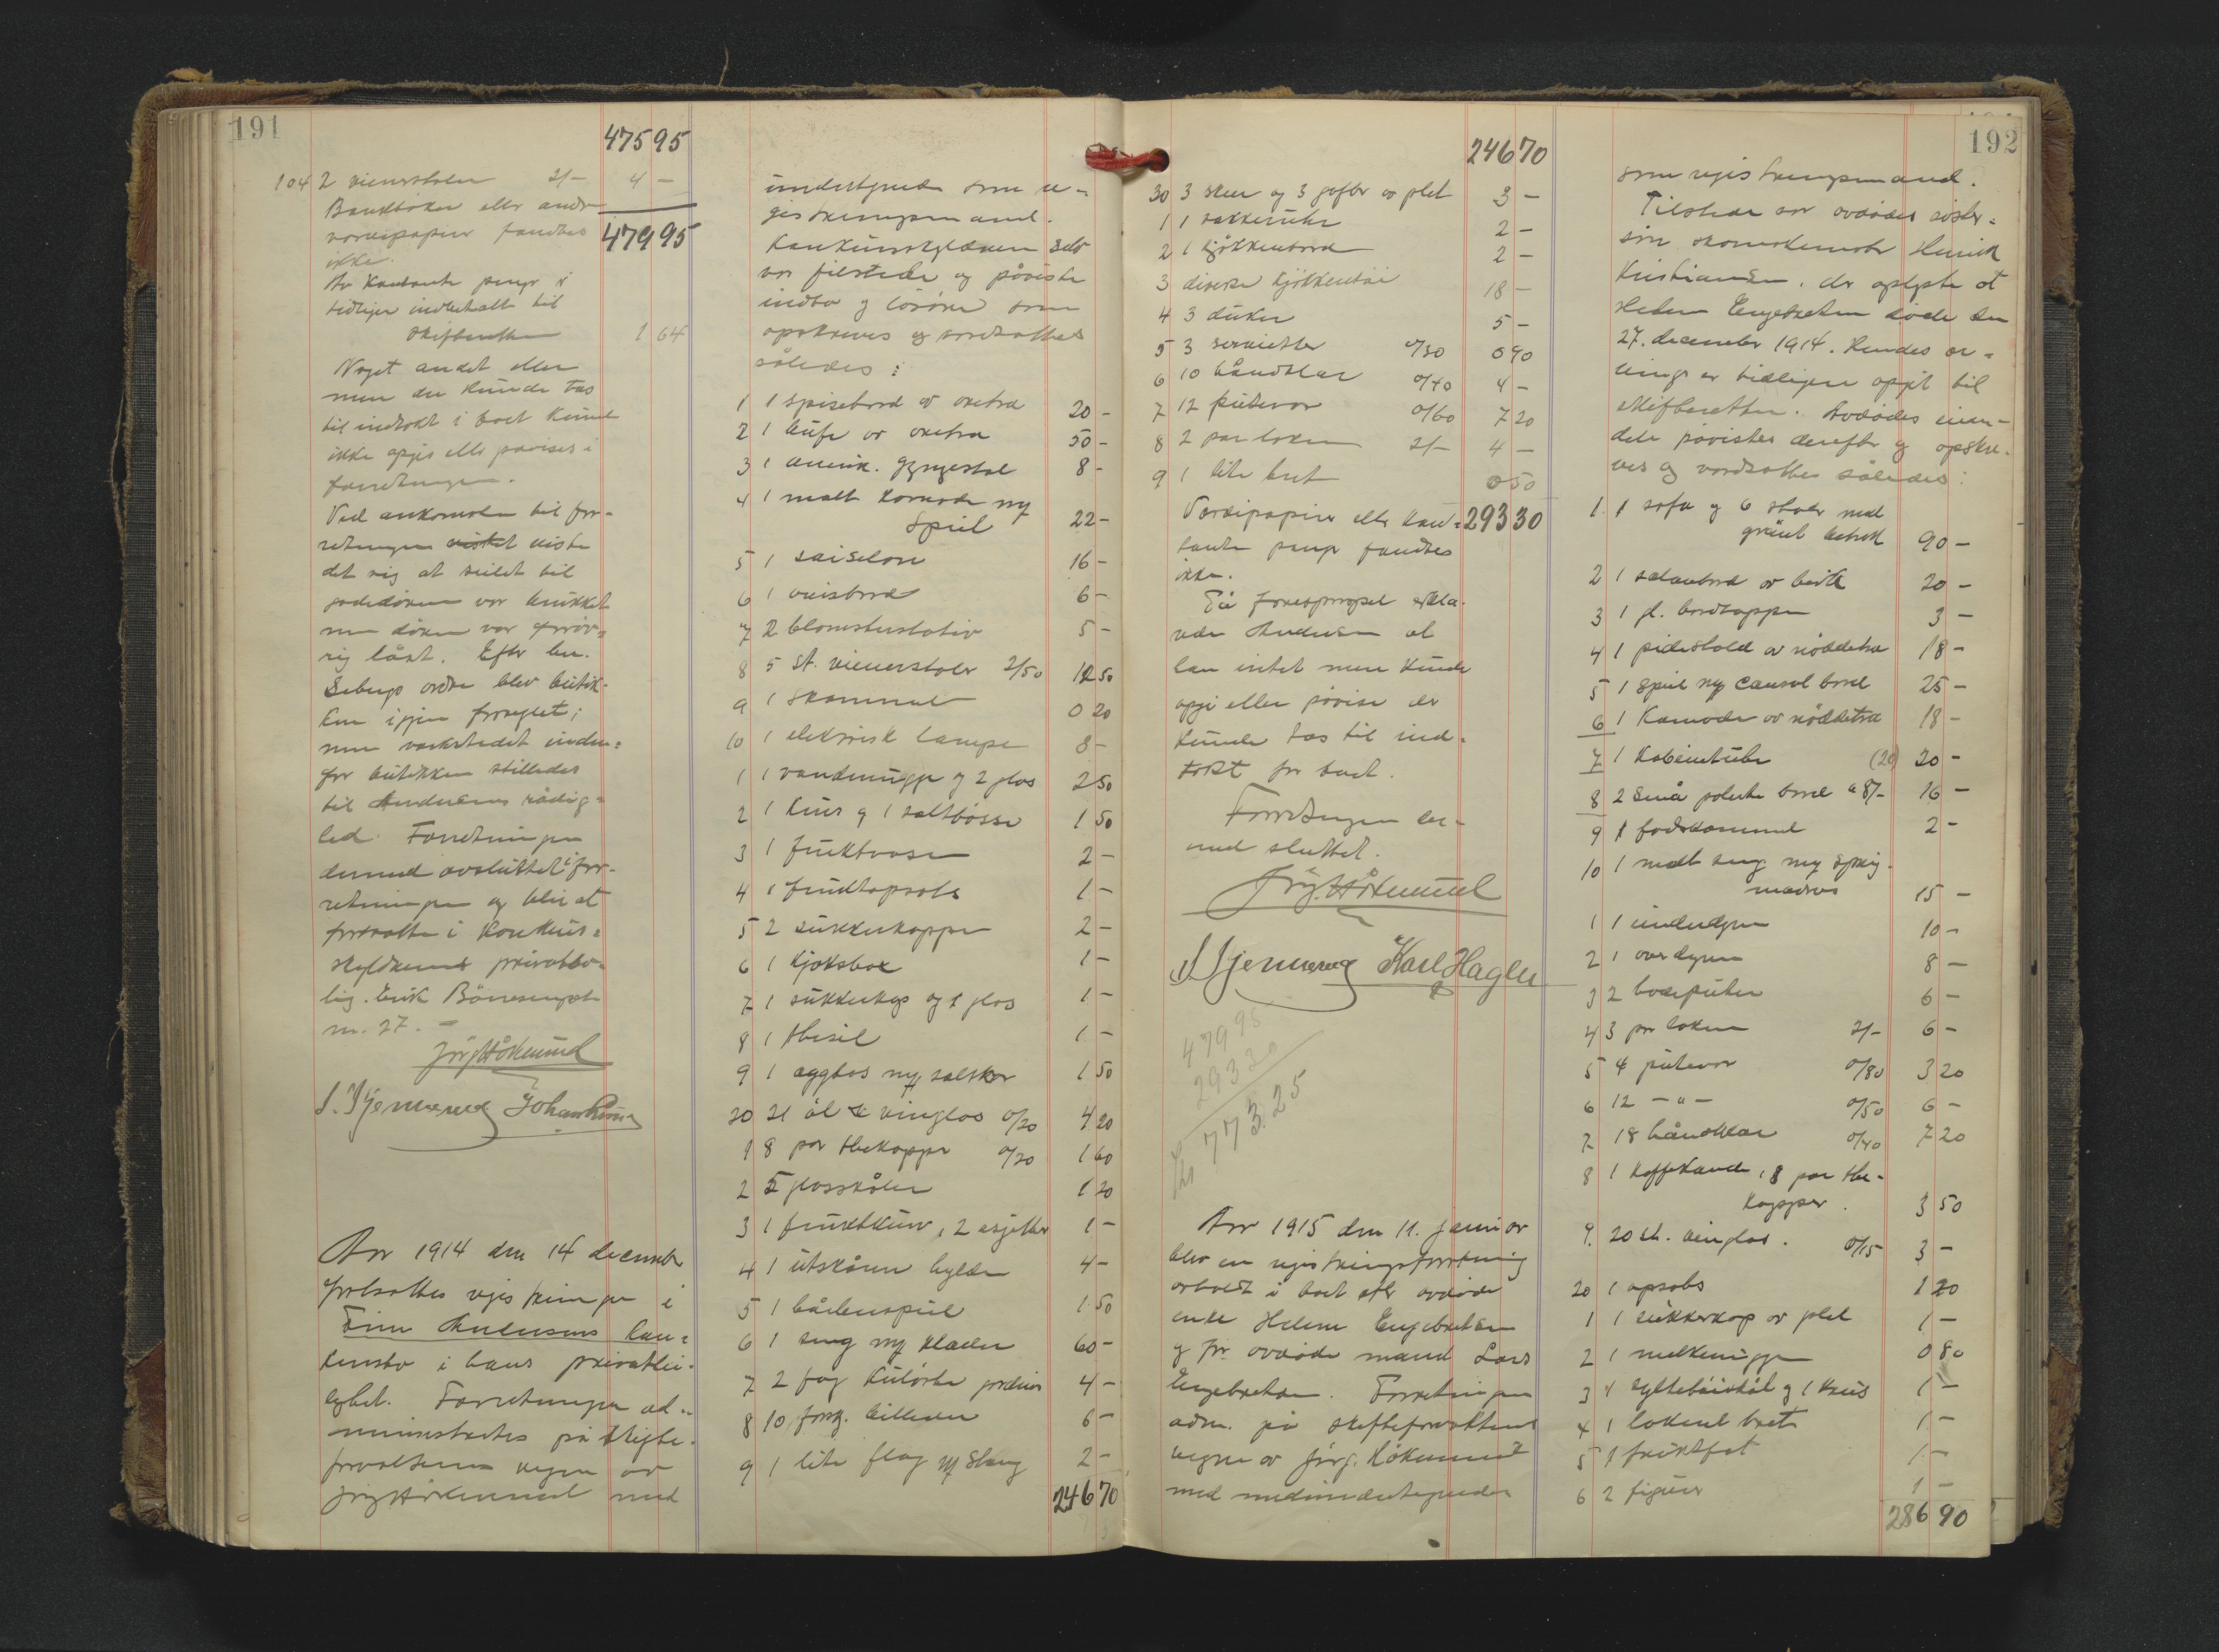 191
475 95
104 2 vienerstoler 2/- 4 -
Bankbøker eller andre
værdipapirer fandtes 479 95
ikke.
Av kontante penge er
tidligere indbetalt til
skifteretten 1 64
Noget andet eller
mere der kunde tas
til indtækt i boet kunde
ikke opgis eller påvises i
forretningen.
Ved ankomsten til for-
retningen viste
det sig at seilet til
gadedøren var brukket
men døren var forøv-
rig låst. Efter hr.
Sebergs ordre blev butik-
ken igjen forseglet;
men verkstedet inden-
for butikken stilledes
til Andersens rådig-
hed. Forretningen
dermed avsluttet i for-
retningen og blir at
fortsætte i konkurs-
skyldnerens privatbo-
lig. Erik Börresensgate
nr. 27. -
Jörg. Håkenrud
S. Stjernerud Johan Ruud
Aar 1914 den 14 december
fortsattes registreringen i
Finn Andersens kon-
kursbo i hans privatlei-
lighet. Forretningen ad-
ministrertes på skifte-
forvalterens vegne av
Jörg Håkenrud med
undertegnede som re-
gistreringsmænd.
Konkursskyldneren selv
var tilstede og påviste
indbo og løsøre som
opskreves og verdsattes
således:
1 1 spisebord av øxetræ 20 -
2 1 bufe av øxetræ 50 -
3 1 amerik. gyngestol 8 -
4 1 malt komode m/
speil 22 -
5 1 saiselon 16 -
6 1 avisbord 6 -
7 2 blomsterstativ 5 -
8 5 st. vienerstoler 2/50 12 50
9 1 skammel 0 20
10 1 elektrisk lampe 8 -
1 1 vandmugge og 2 glas 2 50
2 1 krus og 1 saltbøsse 1 50
3 1 fruktvase 2 -
4 1 fruktopsats 1 -
5 2 sukkerkopper 2 -
6 1 kjeksbox 1 -
7 1 sukkerkop og 1 glas 1 -
8 1 thesil 1 -
9 1 æggglas m/ saltkar 1 50
20 21 øl & vinglas 0/20 4 20
1 8 par thekopper 0/20 1 60
2 5 glasskåler 1 20
3 1 fruktkurv, 2 asjetter 1 -
4 1 utskåren hylde 4 -
5 1 håndspeil 1 50
6 1 seng m/ klæder 60 -
7 2 fag kulørte gardiner 4 -
8 10 forsk. billeder 6 -
9 1 lite flag m/ stang 2 -
246 70
246 70
30 3 skeer og 3 gafler av plet 3 -
1 1 vækkerur 2 -
2 1 kjøkkenbord 2 -
3 diverse kjøkkentøi 18 -
4 3 duker 5 -
5 3 servietter 0/30 0 90
6 10 håndklær 0/40 4 -
7 12 putevar 0/60 7 20
8 2 par laken 2/- 4 -
9 1 lite bret 0 50
Værdipapirer eller kon- 293 30
tante penge fandtes
ikke.
På forespørgsel erklæ-
rede Andersen at
han intet mere kunde
opgi eller påvise der
kunde tas til ind-
tækt for boet.
Forretningen her-
med sluttet.
Jörg. Håkenrud
S. Stjernerud Karl Hagen
479 95
293 30
Kr 773.25
Aar 1915 den 11. januar
blev en registreringsforretning
avholdt i boet efter avdøde
enke Helene Engebretsen
og før avdøde mand Lars
Engebretsen. Forretningen
adm. på skifteforvalterens
vegne av Jörg. Håkenrud
med medundertegnede
192
som registreringsmænd.
Tilstede var avdødes søster-
søn skomakermester Henrik
Kristiansen, der oplyste at
Helene Engebretsen døde den
27. december 1914. Hendes ar-
vinger er tidligere opgit til
skifteretten. Avdødes eien-
dele påvistes derefter og opskre-
ves og verdsattes således:
1. 1 sofa og 6 stoler med
grønt betræk 90 -
2 1 salonbord av birk 20 -
3 1 gl. bordtæppe 3 -
4 1 pidestald av nøddetræ 18 -
5 1 speil m/ consol bord 25 -
6 1 komode av nøddetræ 18 -
7 1 kabinetuhr (20) 20 -
8 2 små polerte bord a 8/- 16 -
9 1 fotskammel 2 -
10 1 malt seng m/ spring-
madras 15 -
1 1 underdyne 10 -
2 1 overdyne 8 -
3 2 hodeputer 6 -
4 3 par laken 2/- 6 -
5 4 putevar 0/80 3 20
6 12 - " - 0/50 6 -
7 18 håndklær 0/40 7 20
8 1 kaffekande, 8 par the-
kopper. 3 50
9. 20 st. vinglas. 0/15 3 -
20 1 opsats 1 20
1 1 sukkerkop av plet 1 -
2 1 melkemugge 0 80
3 1 syltetøiskål og 1 krus 1 -
4 1 lakeret bret 1 -
5 1 fruktfat 1 -
6 2 figurer 1 -
286 90